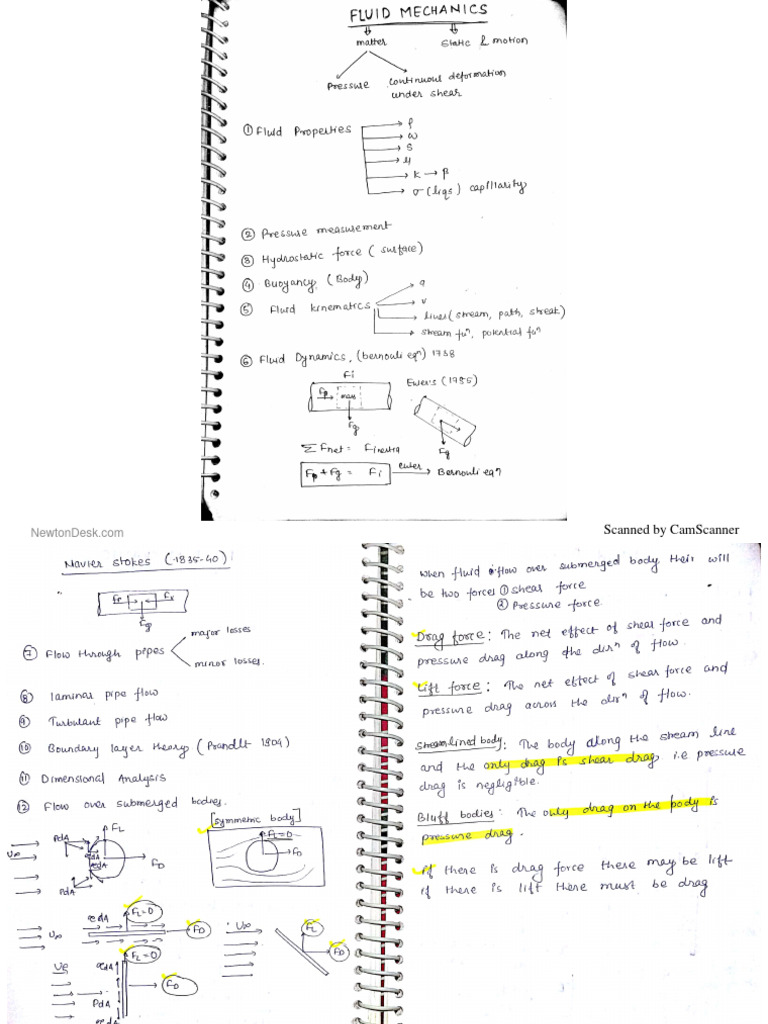 FLUID MECHANICS
matter
Static & motion
Pressure
continuous deformation
under shear
① Fluid Properties
ρ
ω
S
μ
K → β
σ (liqs) capillarity
② Pressure measurement
③ Hydrostatic force ( surface)
④ Buoyancy (Body)
⑤ Fluid kinematics
a
v
lines (stream, path, streak)
stream fuⁿ, potential fuⁿ
⑥ Fluid Dynamics, (bernouli eqⁿ) 1738
Fi
Fp
mass
Fg
Fg
ΣFnet = Finertia
Fp + Fg = Fi
euler
Bernouli eqⁿ
NewtonDesk.com
Scanned by CamScanner
Navier stokes (1835-40)
Fp
Fv
Fg
⑦ Flow through pipes
major losses
minor losses.
⑧ laminar pipe flow
⑨ Turbulant pipe flow
⑩ Boundary layer theory (Prandlt 1904)
⑪ Dimensional Analysis
⑫ Flow over submerged bodies.
[Symmetric body]
U∞
PdA
FL
FD
PdA
FL=0
FD
U∞
FL=0
FD
U∞
FL
FD
FL=0
FD
PdA
when fluid flow over submerged body their will
be two forces ① shear force
② Pressure force
Drag force: The net effect of shear force and
pressure drag along the dirⁿ of flow.
Lift force: The net effect of shear force and
pressure drag across the dirⁿ of flow.
Streamlined body: The body along the stream line
and the only drag is shear drag i.e pressure
drag is negligible.
Bluff bodies: The only drag on the body is
pressure drag.
if there is drag force there may be lift
if there is lift there must be drag